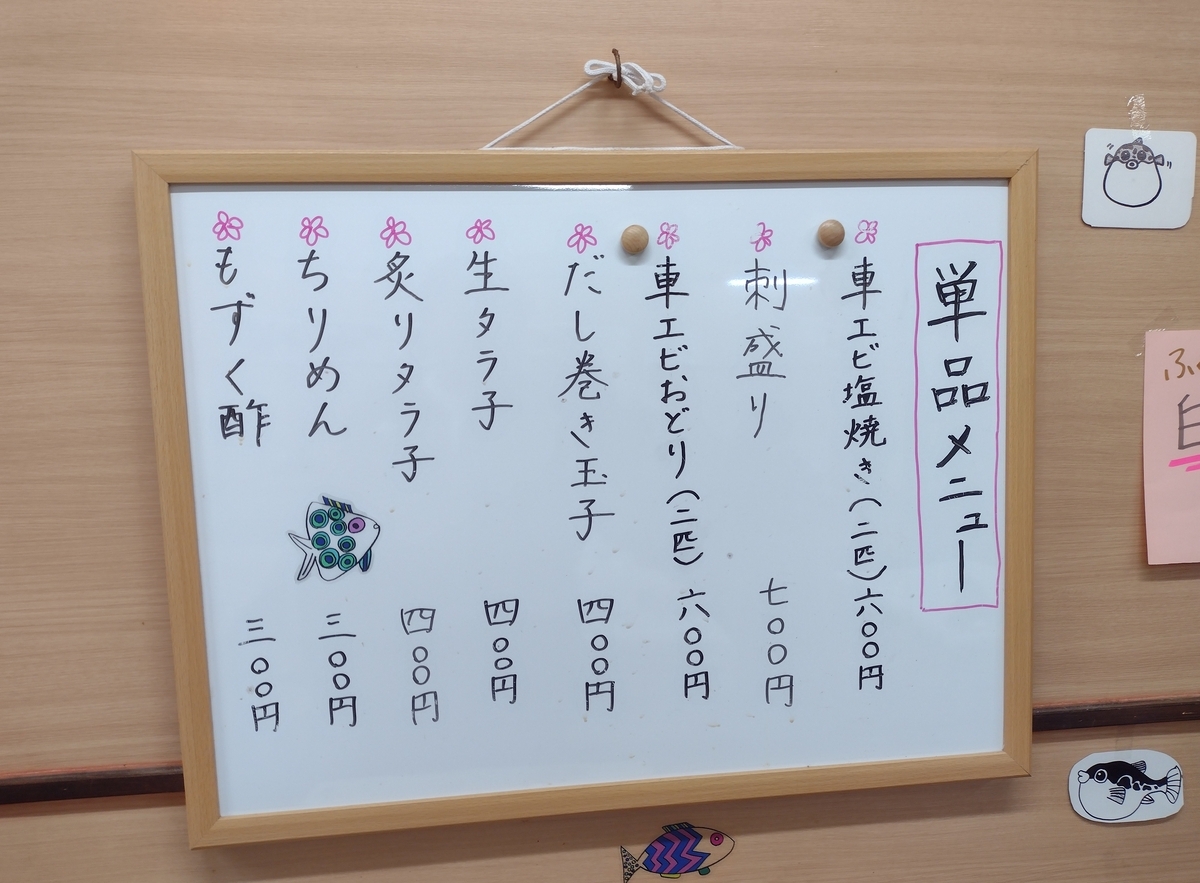 単品メニュー
車エビ塩焼き(二匹)六〇〇円
刺盛り 七〇〇円
車エビおどり(二匹)六〇〇円
だし巻き玉子 四〇〇円
生タラ子 四〇〇円
炙りタラ子 四〇〇円
ちりめん 三〇〇円
もずく酢 三〇〇円